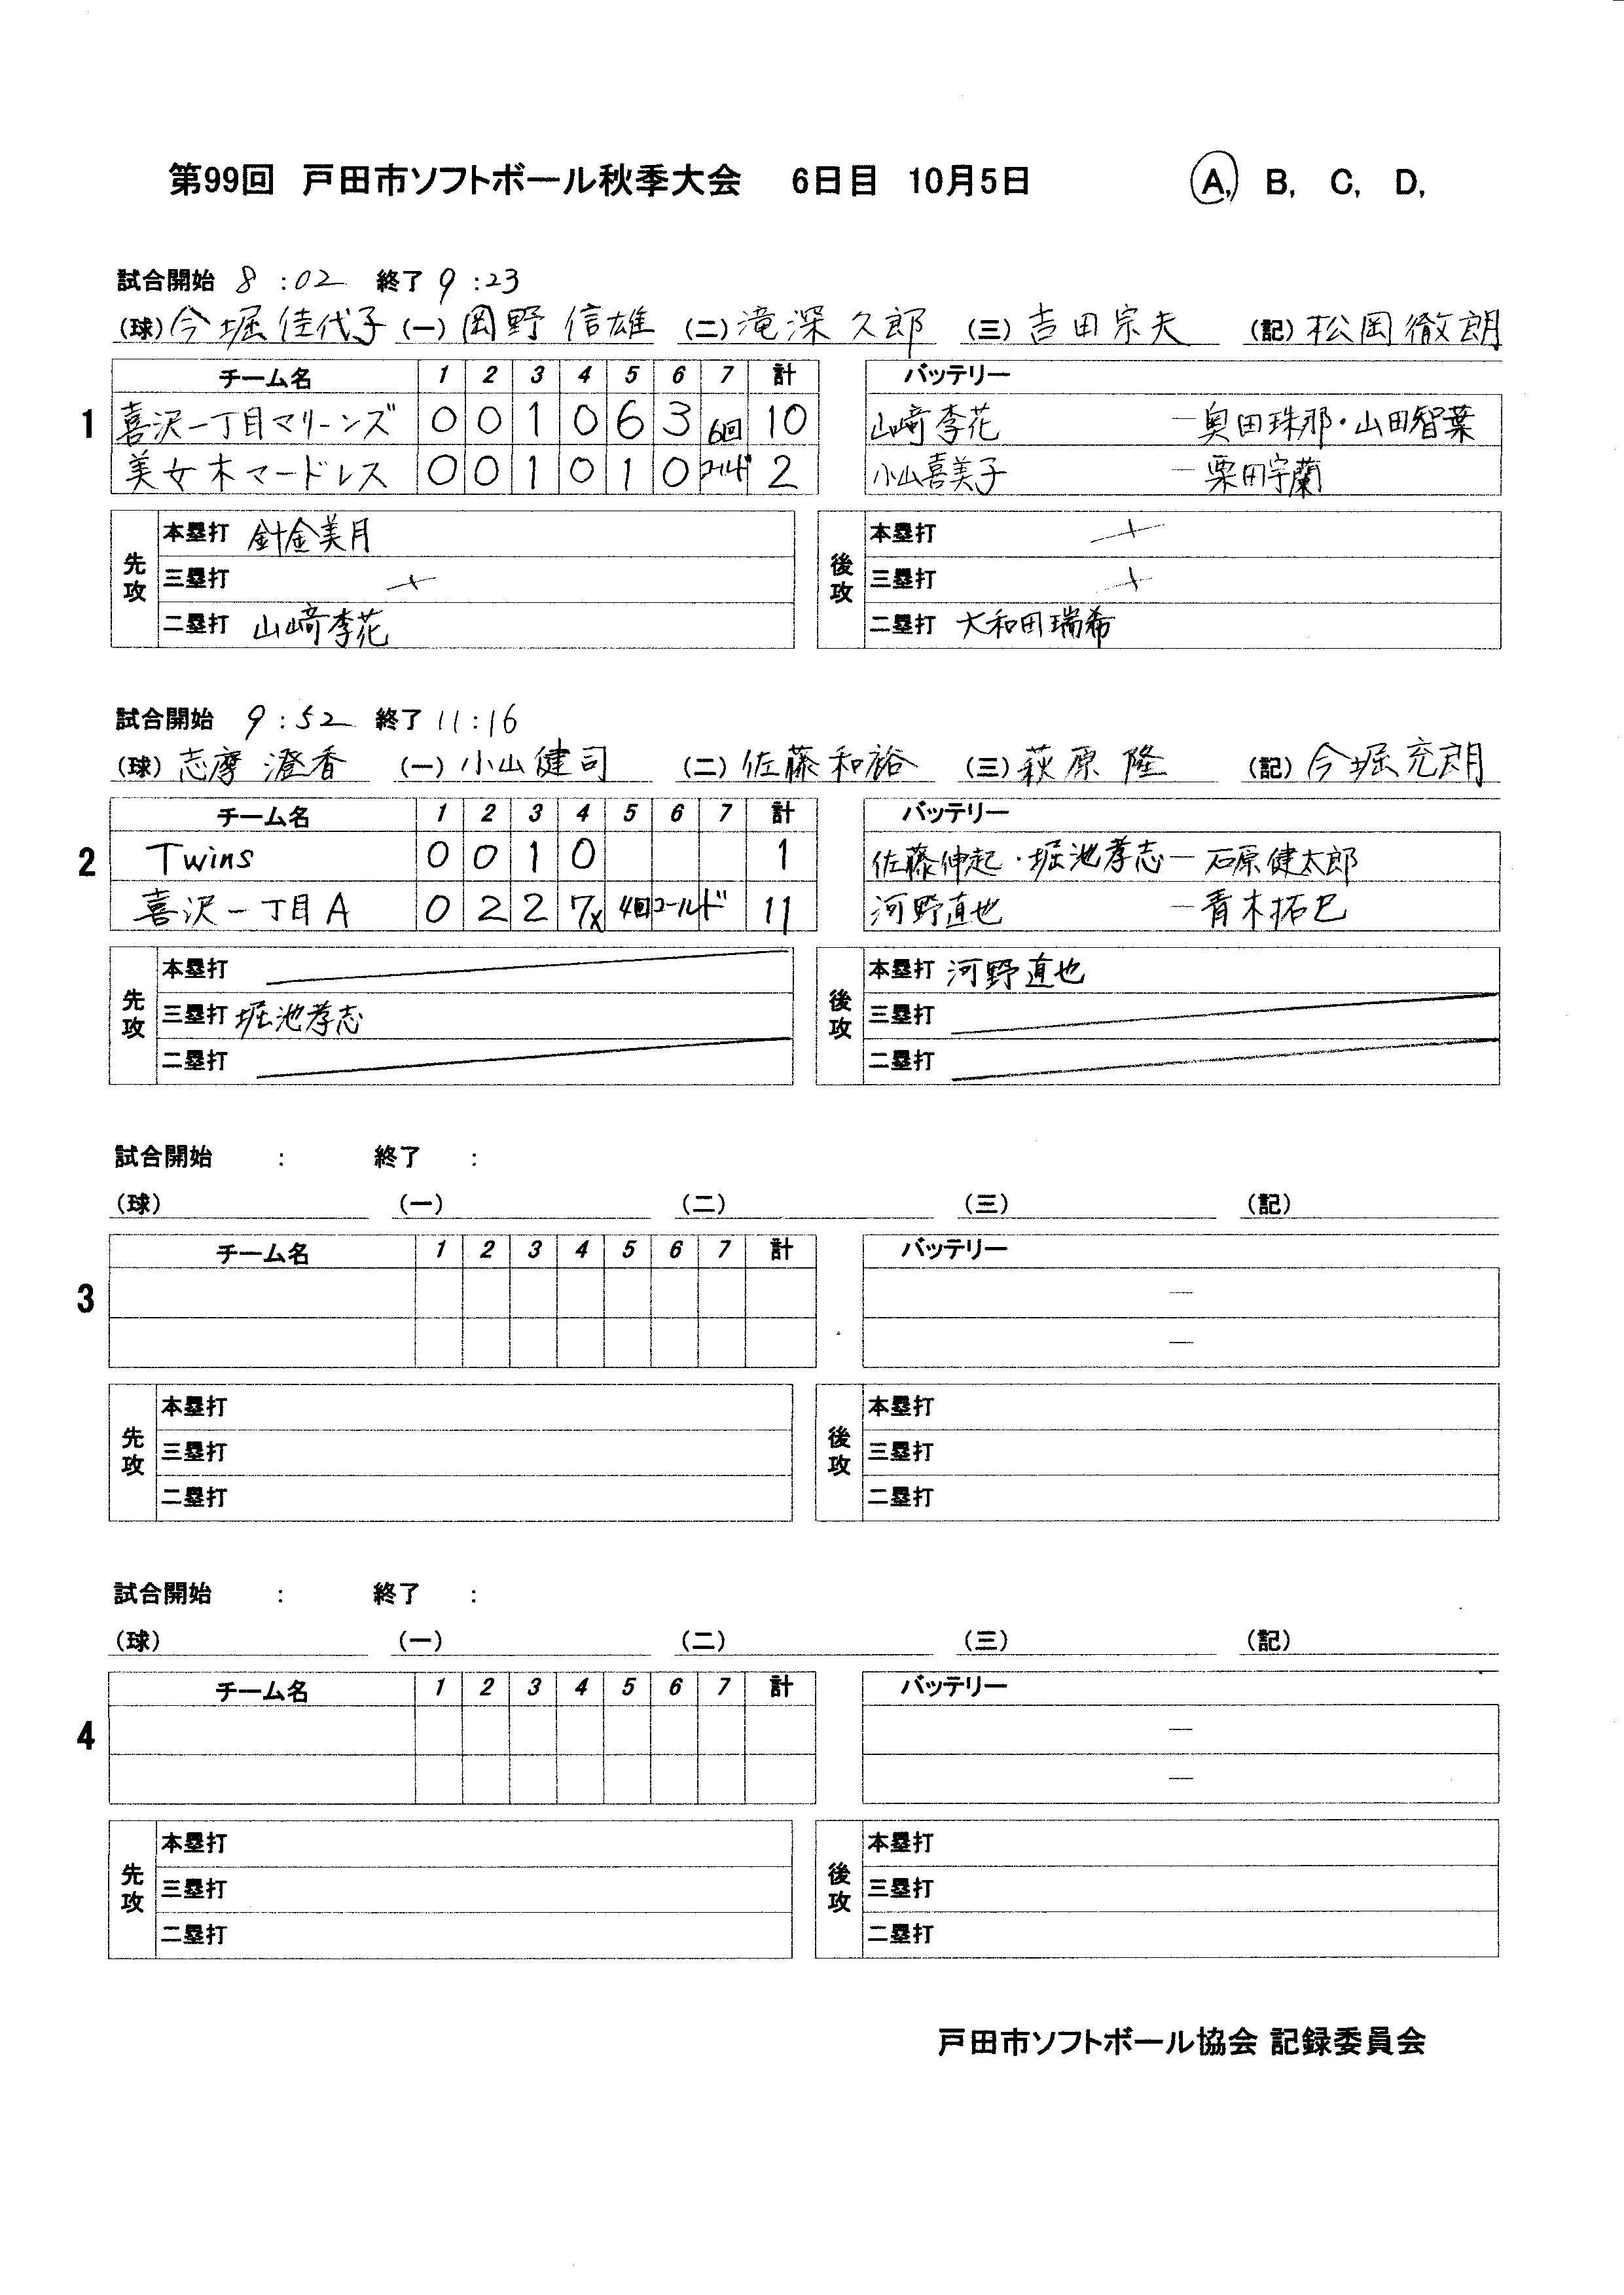 第99回 戸田市ソフトボール秋季大会 6日目 10月5日 A, B, C, D,
試合開始 8:02 終了 9:23
(球)今堀佳代子 (一)岡野信雄 (二)滝深久郎 (三)吉田宗夫 (記)松岡徹朗
チーム名 1 2 3 4 5 6 7 計 バッテリー
1
喜沢一丁目マリーンズ 0 0 1 0 6 3 6回 10 山﨑李花 ― 奥田珠那・山田智葉
美女木マードレス 0 0 1 0 1 0 コールド 2 小山喜美子 ― 栗田宇蘭
先攻 本塁打 針金美月 後攻 本塁打
三塁打 三塁打
二塁打 山﨑李花 二塁打 大和田瑞希
試合開始 9:52 終了 11:16
(球)志摩澄香 (一)小山健司 (二)佐藤和裕 (三)萩原隆 (記)今堀充朗
チーム名 1 2 3 4 5 6 7 計 バッテリー
2
Twins 0 0 1 0 1 佐藤伸起・堀池孝志 ― 石原健太郎
喜沢一丁目A 0 2 2 7x 4回コールド 11 河野直也 ― 青木拓巳
先攻 本塁打 後攻 本塁打 河野直也
三塁打 堀池孝志 三塁打
二塁打 二塁打
試合開始 : 終了 :
(球) (一) (二) (三) (記)
チーム名 1 2 3 4 5 6 7 計 バッテリー
3
―
―
先攻 本塁打 後攻 本塁打
三塁打 三塁打
二塁打 二塁打
試合開始 : 終了 :
(球) (一) (二) (三) (記)
チーム名 1 2 3 4 5 6 7 計 バッテリー
4
―
―
先攻 本塁打 後攻 本塁打
三塁打 三塁打
二塁打 二塁打
戸田市ソフトボール協会 記録委員会